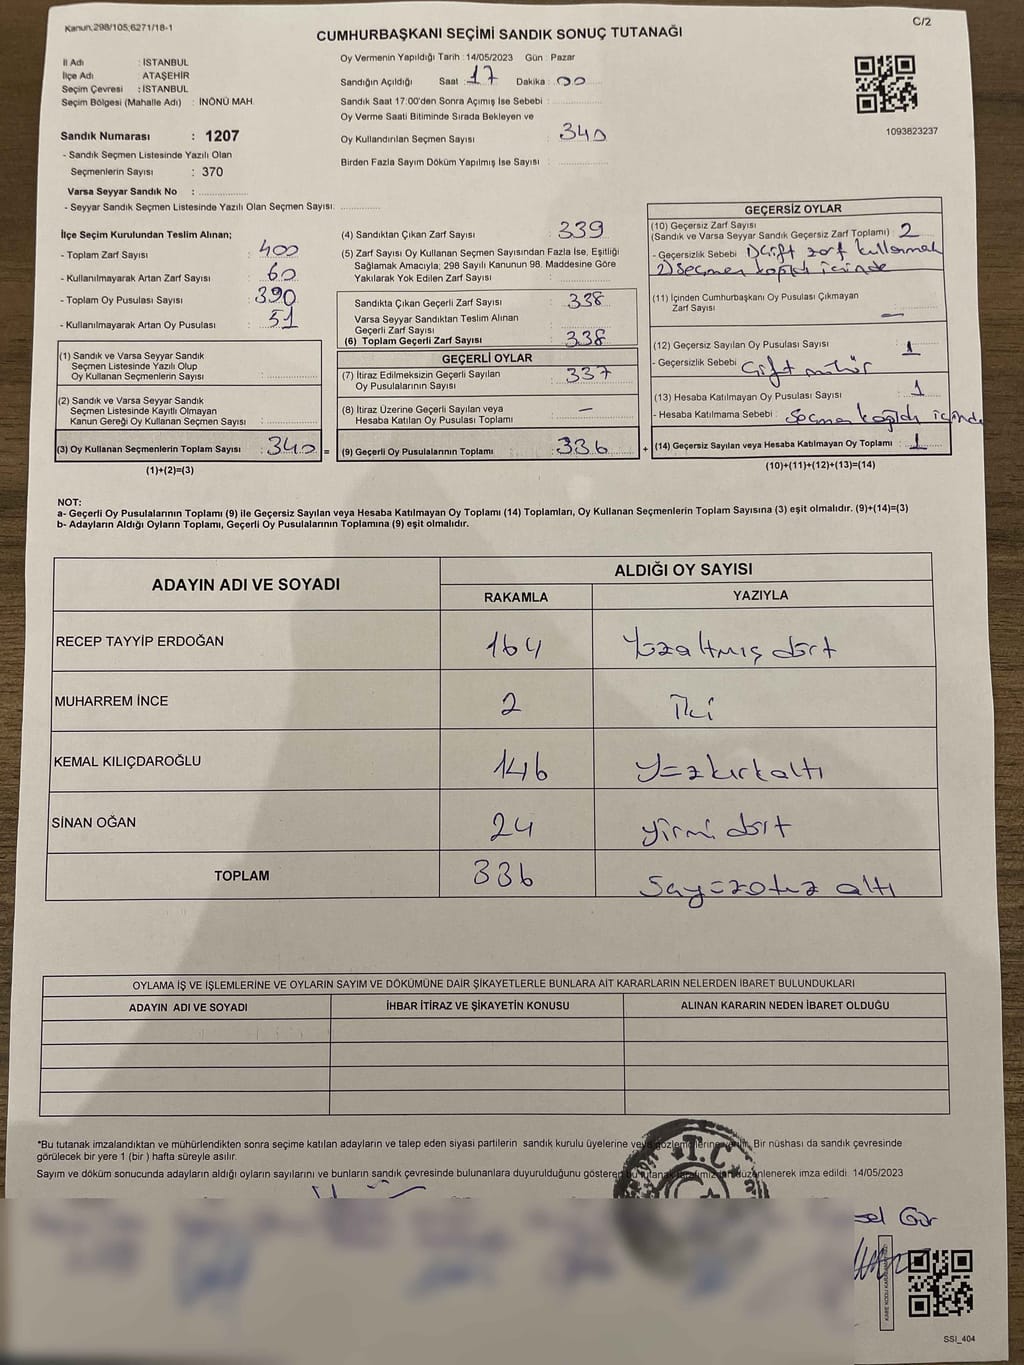 Kanun;298/105;6271/18-1
C/2
CUMHURBAŞKANI SEÇİMİ SANDIK SONUÇ TUTANAĞI
İl Adı : İSTANBUL
İlçe Adı : ATAŞEHİR
Seçim Çevresi : İSTANBUL
Seçim Bölgesi (Mahalle Adı) : İNÖNÜ MAH.
Sandık Numarası : 1207
- Sandık Seçmen Listesinde Yazılı Olan
Seçmenlerin Sayısı : 370
Varsa Seyyar Sandık No :
- Seyyar Sandık Seçmen Listesinde Yazılı Olan Seçmen Sayısı:
Oy Vermenin Yapıldığı Tarih : 14/05/2023 Gün : Pazar
Sandığın Açıldığı Saat : 17 Dakika : 00
Sandık Saat 17:00'den Sonra Açımış İse Sebebi :
Oy Verme Saati Bitiminde Sırada Bekleyen ve
Oy Kullandırılan Seçmen Sayısı : 340
Birden Fazla Sayım Döküm Yapılmış İse Sayısı :
1093823237
İlçe Seçim Kurulundan Teslim Alınan;
- Toplam Zarf Sayısı : 400
- Kullanılmayarak Artan Zarf Sayısı : 60
- Toplam Oy Pusulası Sayısı : 390
- Kullanılmayarak Artan Oy Pusulası : 51
(1) Sandık ve Varsa Seyyar Sandık
Seçmen Listesinde Yazılı Olup
Oy Kullanan Seçmenlerin Sayısı :
(2) Sandık ve Varsa Seyyar Sandık
Seçmen Listesinde Kayıtlı Olmayan
Kanun Gereği Oy Kullanan Seçmen Sayısı :
(3) Oy Kullanan Seçmenlerin Toplam Sayısı : 340 =
(1)+(2)=(3)
(4) Sandıktan Çıkan Zarf Sayısı : 339
(5) Zarf Sayısı Oy Kullanan Seçmen Sayısından Fazla İse, Eşitliği
Sağlamak Amacıyla, 298 Sayılı Kanunun 98. Maddesine Göre
Yakılarak Yok Edilen Zarf Sayısı :
Sandıkta Çıkan Geçerli Zarf Sayısı : 338
Varsa Seyyar Sandıktan Teslim Alınan
Geçerli Zarf Sayısı :
(6) Toplam Geçerli Zarf Sayısı : 338
GEÇERLİ OYLAR
(7) İtiraz Edilmeksizin Geçerli Sayılan
Oy Pusulalarının Sayısı : 337
(8) İtiraz Üzerine Geçerli Sayılan veya
Hesaba Katılan Oy Pusulası Toplamı : -
(9) Geçerli Oy Pusulalarının Toplamı : 336 +
GEÇERSİZ OYLAR
(10) Geçersiz Zarf Sayısı
(Sandık ve Varsa Seyyar Sandık Geçersiz Zarf Toplamı) : 2
- Geçersizlik Sebebi : 1) Çift zarf kullanmak
2) Seçmen kağıdı içinde
(11) İçinden Cumhurbaşkanı Oy Pusulası Çıkmayan
Zarf Sayısı : -
(12) Geçersiz Sayılan Oy Pusulası Sayısı : 1
- Geçersizlik Sebebi : Çift mühür
(13) Hesaba Katılmayan Oy Pusulası Sayısı : 1
- Hesaba Katılmama Sebebi : Seçmen kağıdı içinde
(14) Geçersiz Sayılan veya Hesaba Katılmayan Oy Toplamı : 1
(10)+(11)+(12)+(13)=(14)
NOT:
a- Geçerli Oy Pusulalarının Toplamı (9) ile Geçersiz Sayılan veya Hesaba Katılmayan Oy Toplamı (14) Toplamları, Oy Kullanan Seçmenlerin Toplam Sayısına (3) eşit olmalıdır. (9)+(14)=(3)
b- Adayların Aldığı Oyların Toplamı, Geçerli Oy Pusulalarının Toplamına (9) eşit olmalıdır.
ADAYIN ADI VE SOYADI
ALDIĞI OY SAYISI
RAKAMLA YAZIYLA
RECEP TAYYİP ERDOĞAN 164 Yüzaltmış dört
MUHARREM İNCE 2 İki
KEMAL KILIÇDAROĞLU 146 Yüzkırkaltı
SİNAN OĞAN 24 yirmi dört
TOPLAM 336
OYLAMA İŞ VE İŞLEMLERİNE VE OYLARIN SAYIM VE DÖKÜMÜNE DAİR ŞİKAYETLERLE BUNLARA AİT KARARLARIN NELERDEN İBARET BULUNDUKLARI
ADAYIN ADI VE SOYADI İHBAR İTİRAZ VE ŞİKAYETİN KONUSU ALINAN KARARIN NEDEN İBARET OLDUĞU
*Bu tutanak imzalandıktan ve mühürlendikten sonra seçime katılan adayların ve talep eden siyasi partilerin sandık kurulu üyelerine veya gözlemcilerine verilir. Bir nüshası da sandık çevresinde
görülecek bir yere 1 (bir ) hafta süreyle asılır.
Sayım ve döküm sonucunda adayların aldığı oyların sayılarını ve bunların sandık çevresinde bulunanlara duyurulduğunu gösteren bu tutanak tarafımızdan düzenlenerek imza edildi. 14/05/2023
T.C.
sel Gür
SSİ_404